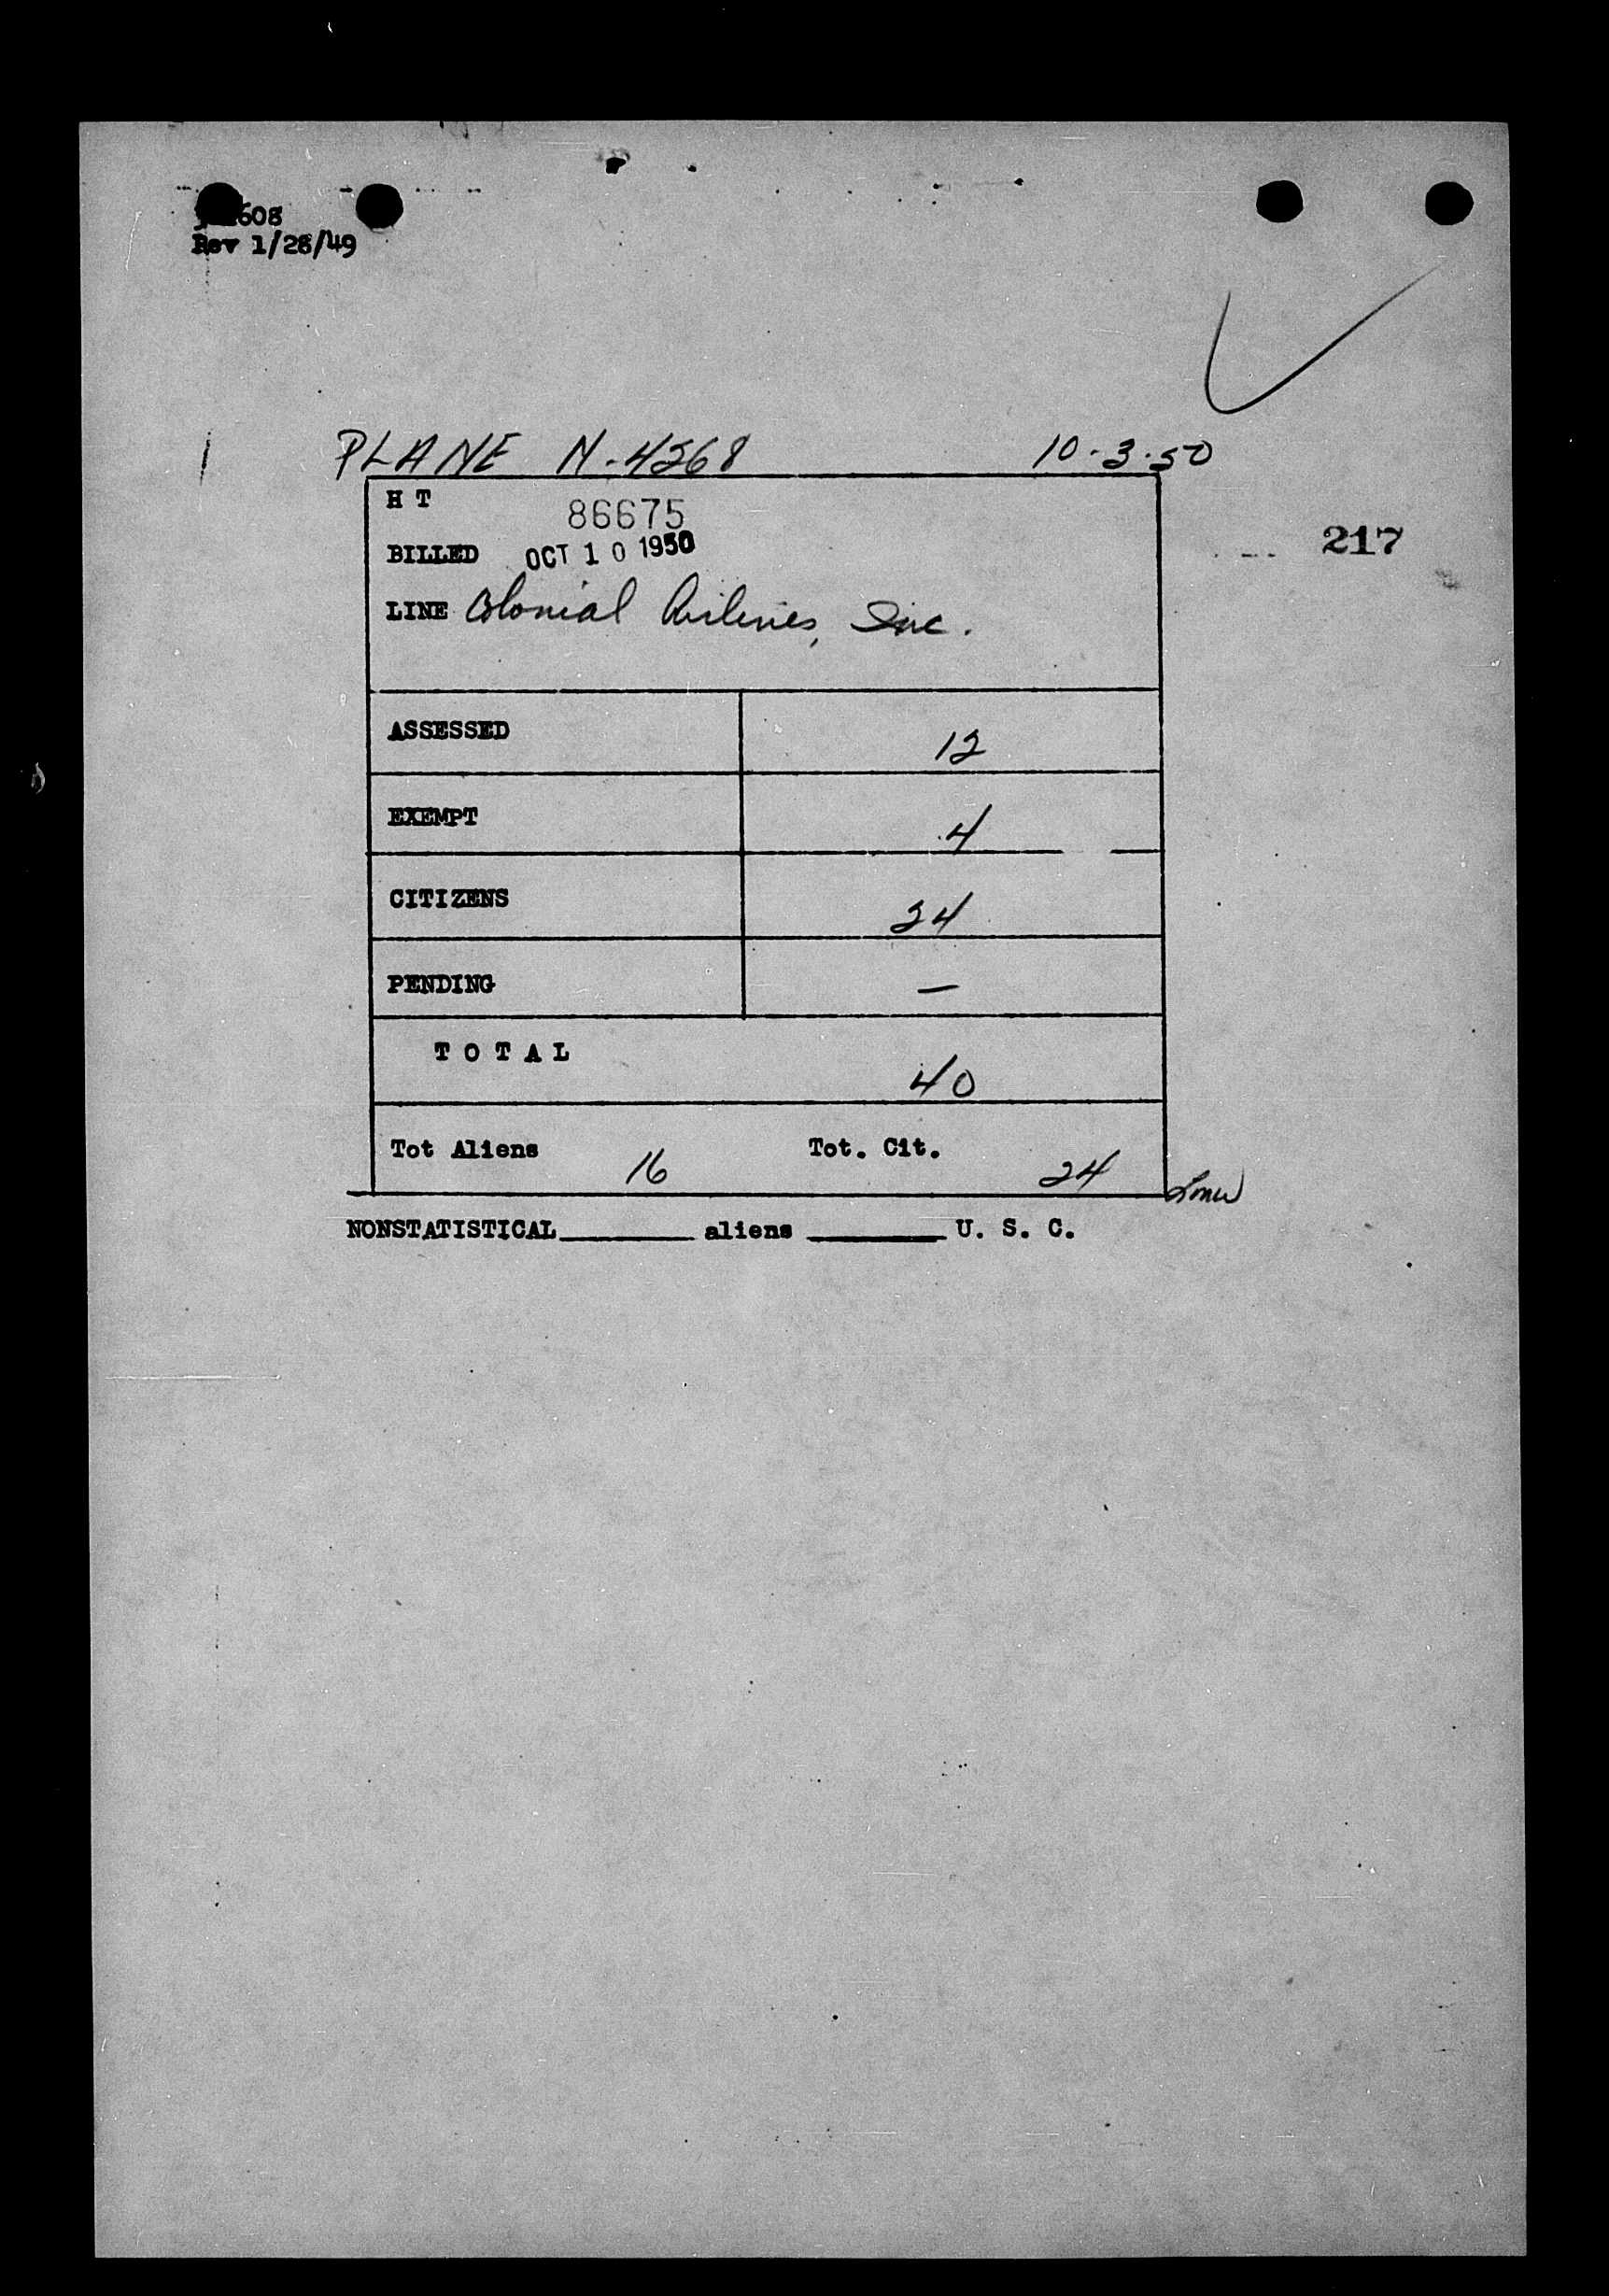 608
Rev 1/28/49
PLANE N-4268 10-3-50
H T 86675
217
BILLED OCT 10 1950
LINE Colonial Airlines, Inc.
ASSESSED 12
EXEMPT 4
CITIZENS 24
PENDING —
TOTAL 40
Tot Aliens 16 Tot. Cit. 24
NONSTATISTICAL______ aliens ______ U. S. C.